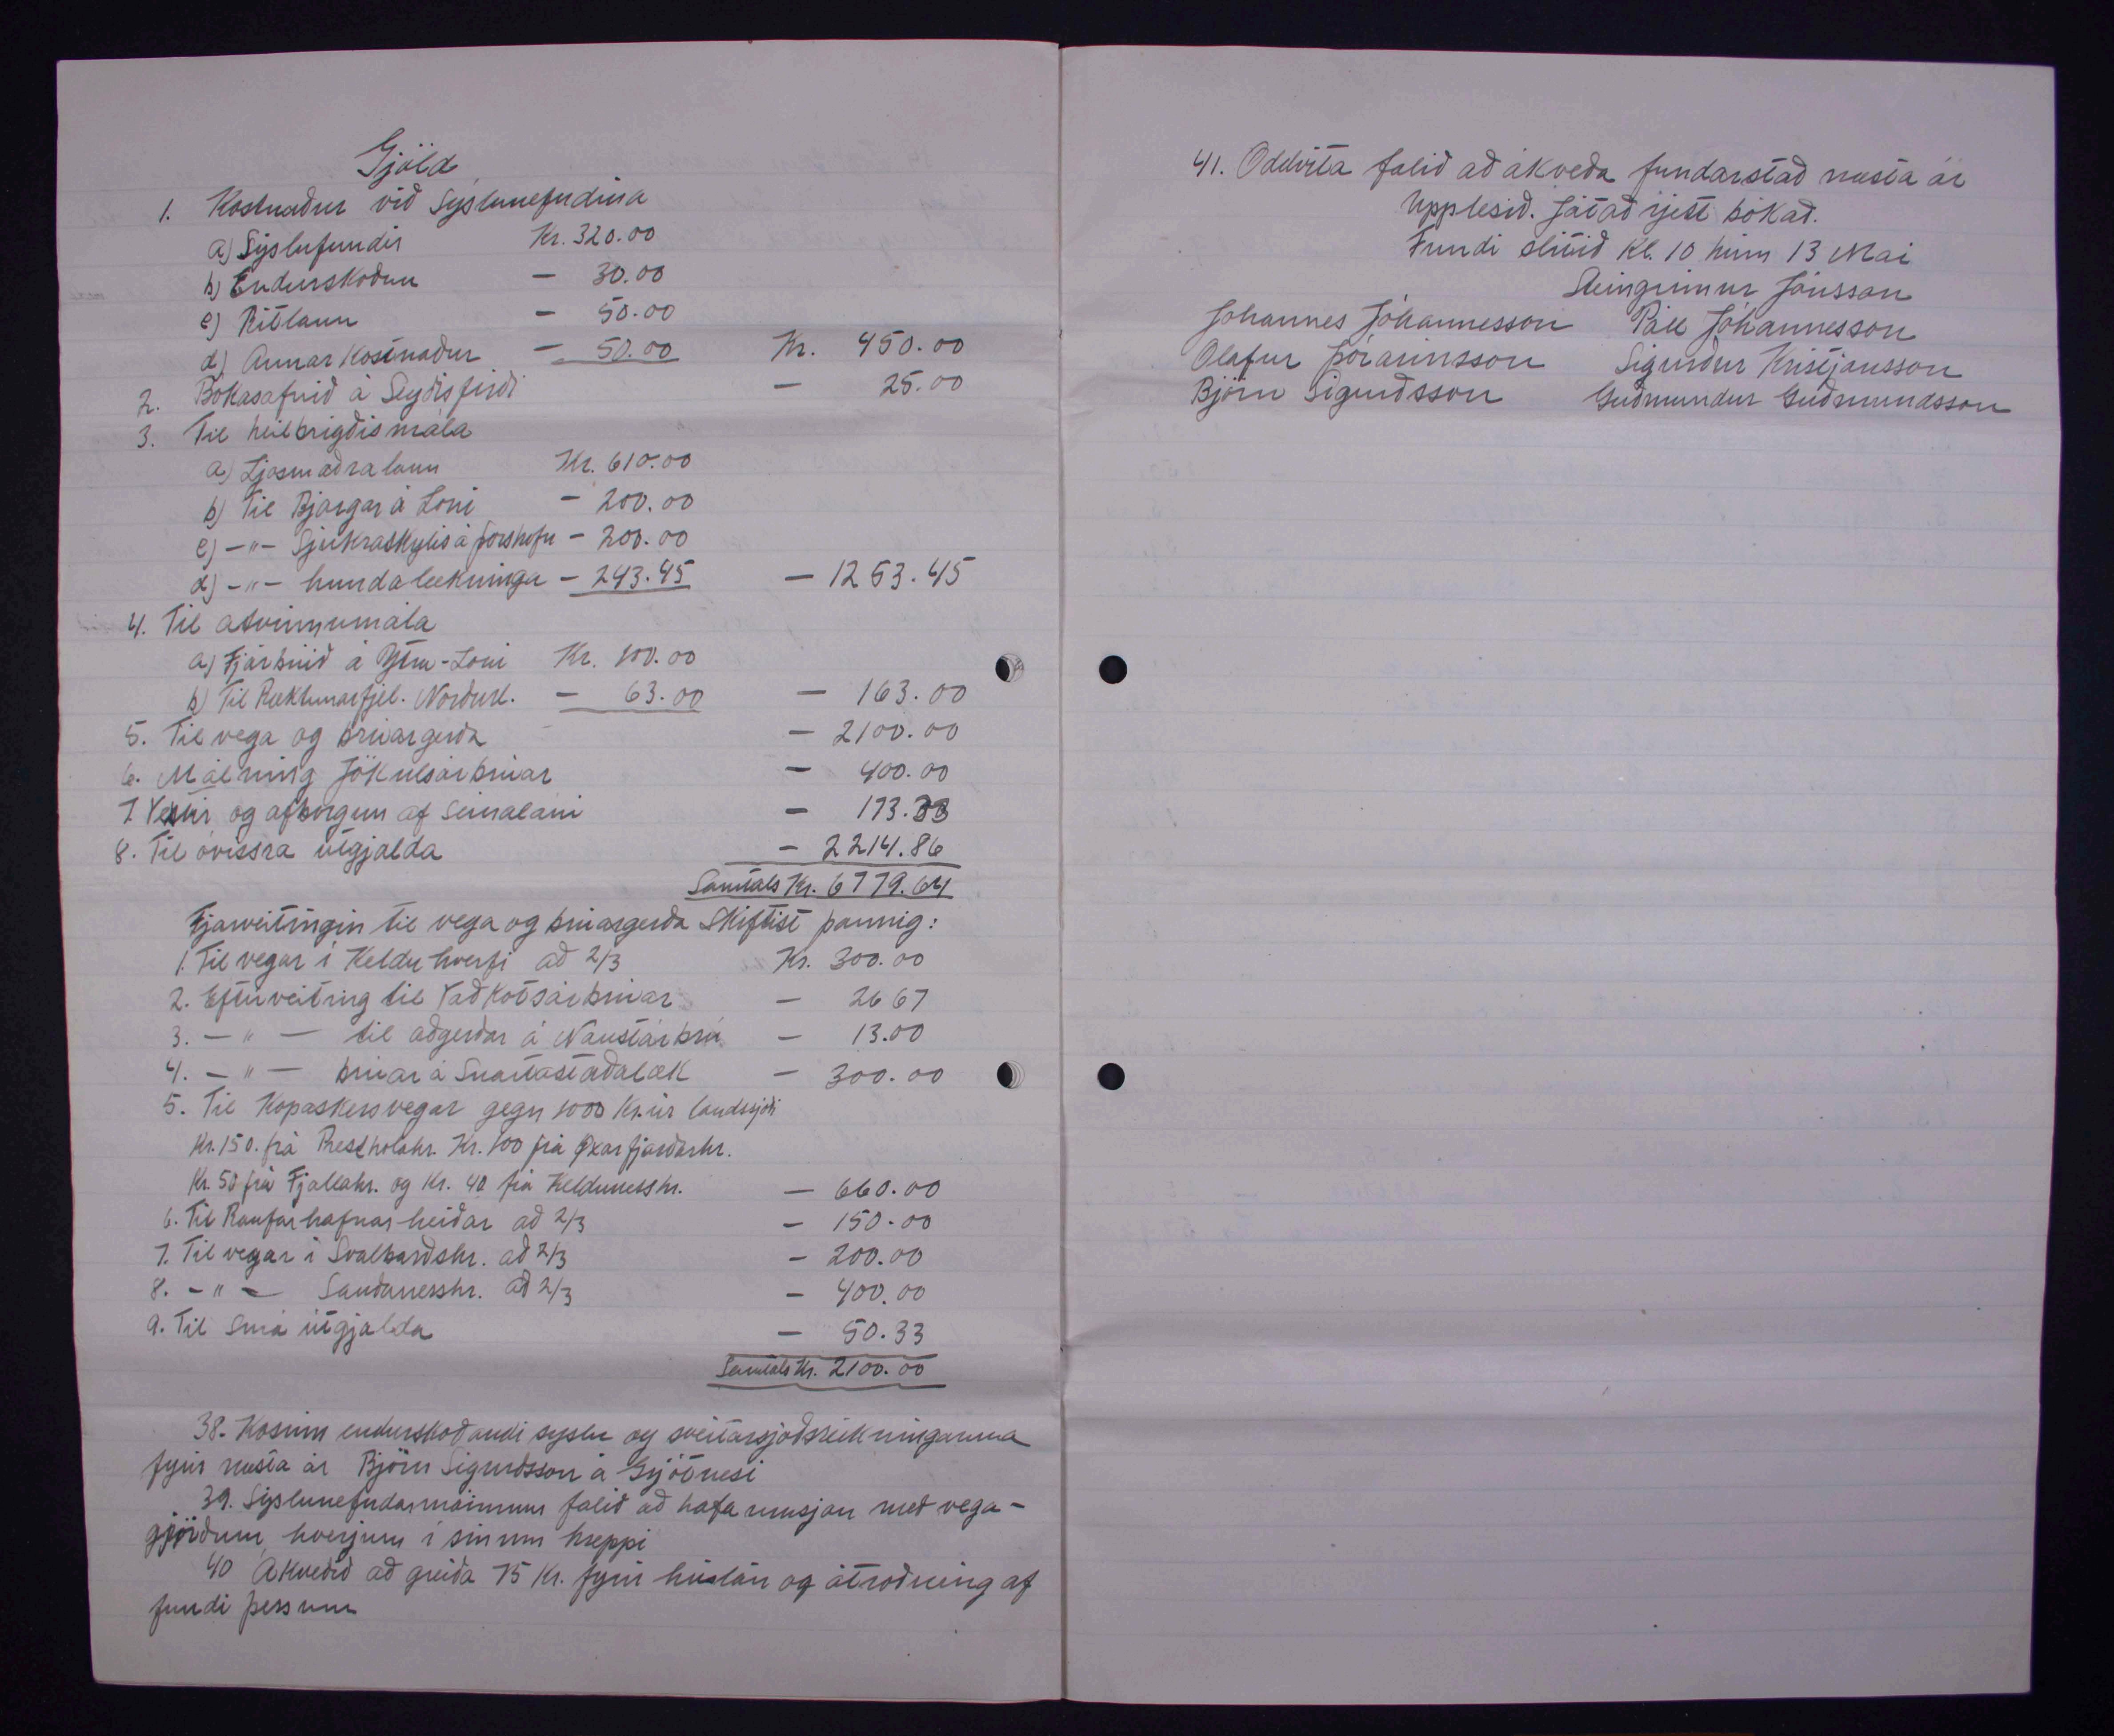 Gjöld
1. Kostnaður við Sýslunefndina
a) Sýslufundir Kr. 320.00
b) Endurskoðun — 30.00
c) Ritlaun — 50.00
d) Annar kostnaður — 50.00 Kr. 450.00
2. Bókasafnið á Seyðisfirði — 25.00
3. Til heilbrigðismála
a) Ljósmæðralaun Kr. 610.00
b) Til Bjargar á Loni — 200.00
c) —"— Sjúkraskýlis á Þórshöfn — 200.00
d) —"— hundalækninga — 243.45 — 1253.45
4. Til atvinnumála
a) Fjárbúið á Ytra-Loni Kr. 100.00
b) Til Ræktunarfjel. Norðurl. — 63.00 — 163.00
5. Til vega og brúargerða — 2100.00
6. Málning Jökulsárbrúar — 400.00
7. Vextir og afborgun af Símaláni — 173.33
8. Til óvissra útgjalda — 2214.86
Samtals Kr. 6779.64
Fjárveitingin til vega og brúargerða skiftist þannig:
1. Til vegar í Kelduhverfi að 2/3 Kr. 300.00
2. Efterveiting til Vaðkotsárbrúar — 26 67
3. —"— til aðgerðar á Naustárbrú — 13.00
4. —"— brúar á Snartastaðalæk — 300.00
5. Til Kópaskersvegar gegn 1000 Kr. úr landssjóði
Kr. 150. frá Presthólahr. Kr. 100 frá Øxarfjarðarhr.
Kr. 50 frá Fjallahr. og Kr. 40 frá Keldunesshr. — 660.00
6. Til Raufarhafnarheiðar að 2/3 — 150.00
7. Til vegar í Svalbarðshr. að 2/3 — 200.00
8. —"— Sauðanesshr. að 2/3 — 400.00
9. Til smá útgjalda — 50.33
Samtals Kr. 2100.00
38. Kosinn endurskoðandi syslu og sveitarsjóðsreikninganna
fyrir næsta ár Björn Sigurðsson á Grjótnesi
39. Sýslunefndarmönnum falið að hafa umsjón með vega-
gjörðum, hverjum í sínum hreppi
40 Ákveðið að greiða 75 Kr. fyrir húslán og átroðning af
fundi þessum
41. Oddvita falið að ákveða fundarstað næsta ár
Upplesið. Játað rjett bókað.
Fundi slitið Kl. 10 hinn 13 Mai
Steingrímur Jónsson
Jóhannes Jóhannesson Páll Jóhannesson
Ólafur Þórarinsson Sigurður Kristjánsson
Björn Sigurðsson Guðmundur Guðmundsson